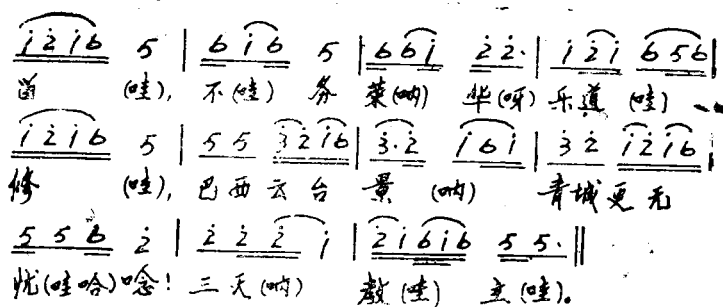 i̇ 2̇ i̇ 6 5 | 6 i̇ 6 5 | 6 6 i̇ 2̇ 2̇· | i̇ 2̇ i̇ 6 5 6 |
(哇), 不(哇) 务 荣(呐) 华(呀) 乐道 (哇)
i̇ 2̇ i̇ 6 5 | 5 5 3̇ 2̇ i̇ 6 | 3̇·2̇ i̇ 6 i̇ | 3̇ 2̇ i̇ 2̇ i̇ 6 |
修 (哇), 巴西云台 景 (呐) 青城更无
5 5 6 2̇ | 2̇ 2̇ 2̇ i̇ | 2̇ i̇ 6 i̇ 6 5 5· ‖
忧(哇哈)唸! 三天(呐) 教(哇) 主(哇)。